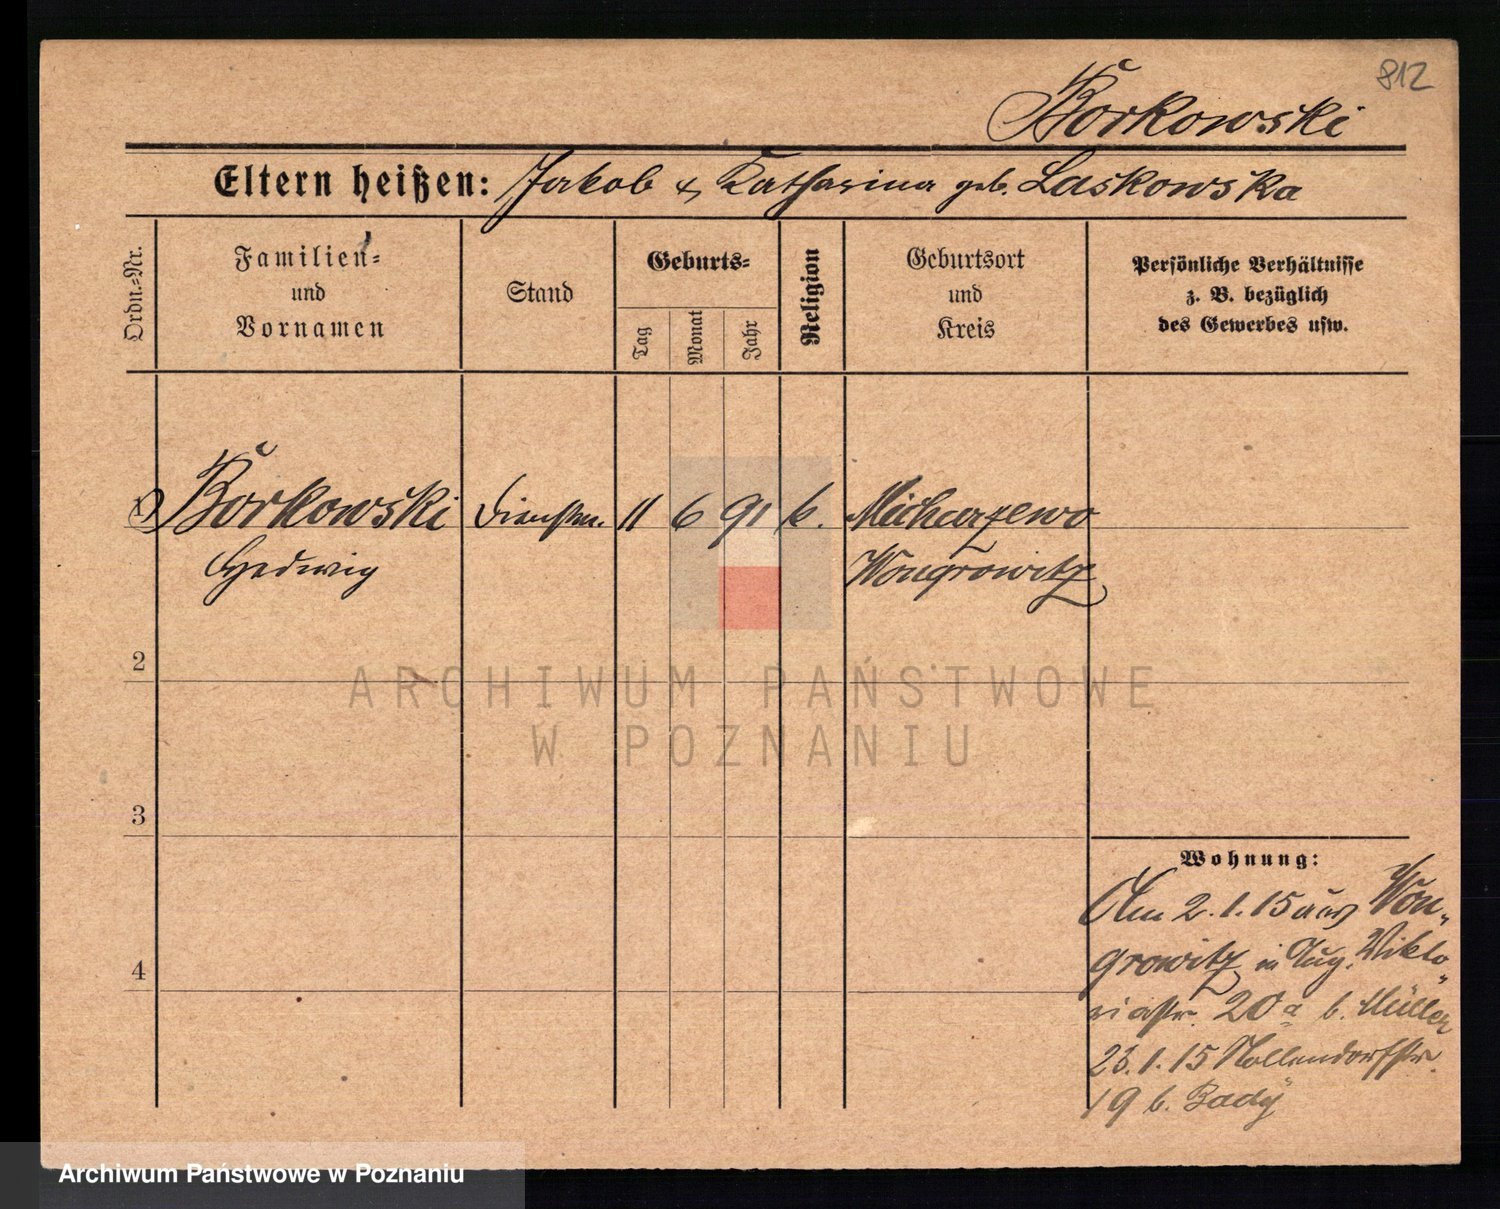 812
Borkowski
Eltern heißen: Jakob & Katharina geb. Laskowska
Ordn.-Nr.
Familien-
und
Vornamen
Stand
Geburts-
Tag
Monat
Jahr
Religion
Geburtsort
und
Kreis
Persönliche Verhältnisse
z. B. bezüglich
des Gewerbes usw.
1 Borkowski Dienstm. 11 6 91 k. Micharzewo
Hedwig Wongrowitz
2
3
4
Wohnung:
Am 2.1.15 aus Won-
growitz in Aug. Vikto-
riastr. 20a b. Müller
23.1.15 Nollendorfstr.
19 b. Bady
ARCHIWUM PAŃSTWOWE
W POZNANIU
Archiwum Państwowe w Poznaniu